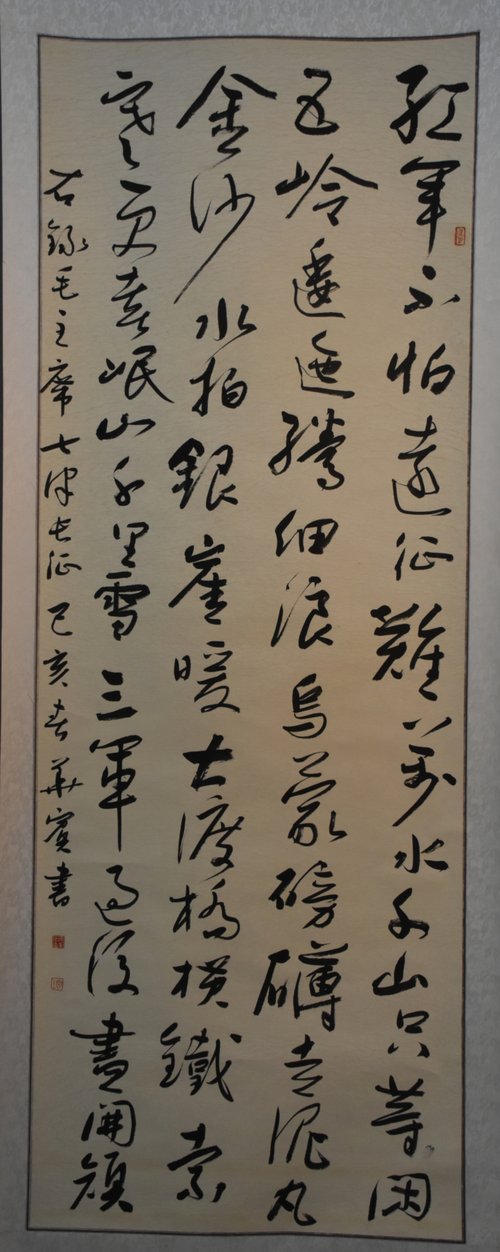 紅軍不怕遠征難萬水千山只等閑
五岭逶迤騰細浪烏蒙磅礴走泥丸
金沙水拍銀崖暖大渡橋橫鐵索
寒更喜岷山千里雪三軍過後盡開顔
右録毛主席七律長征己亥春華賓書